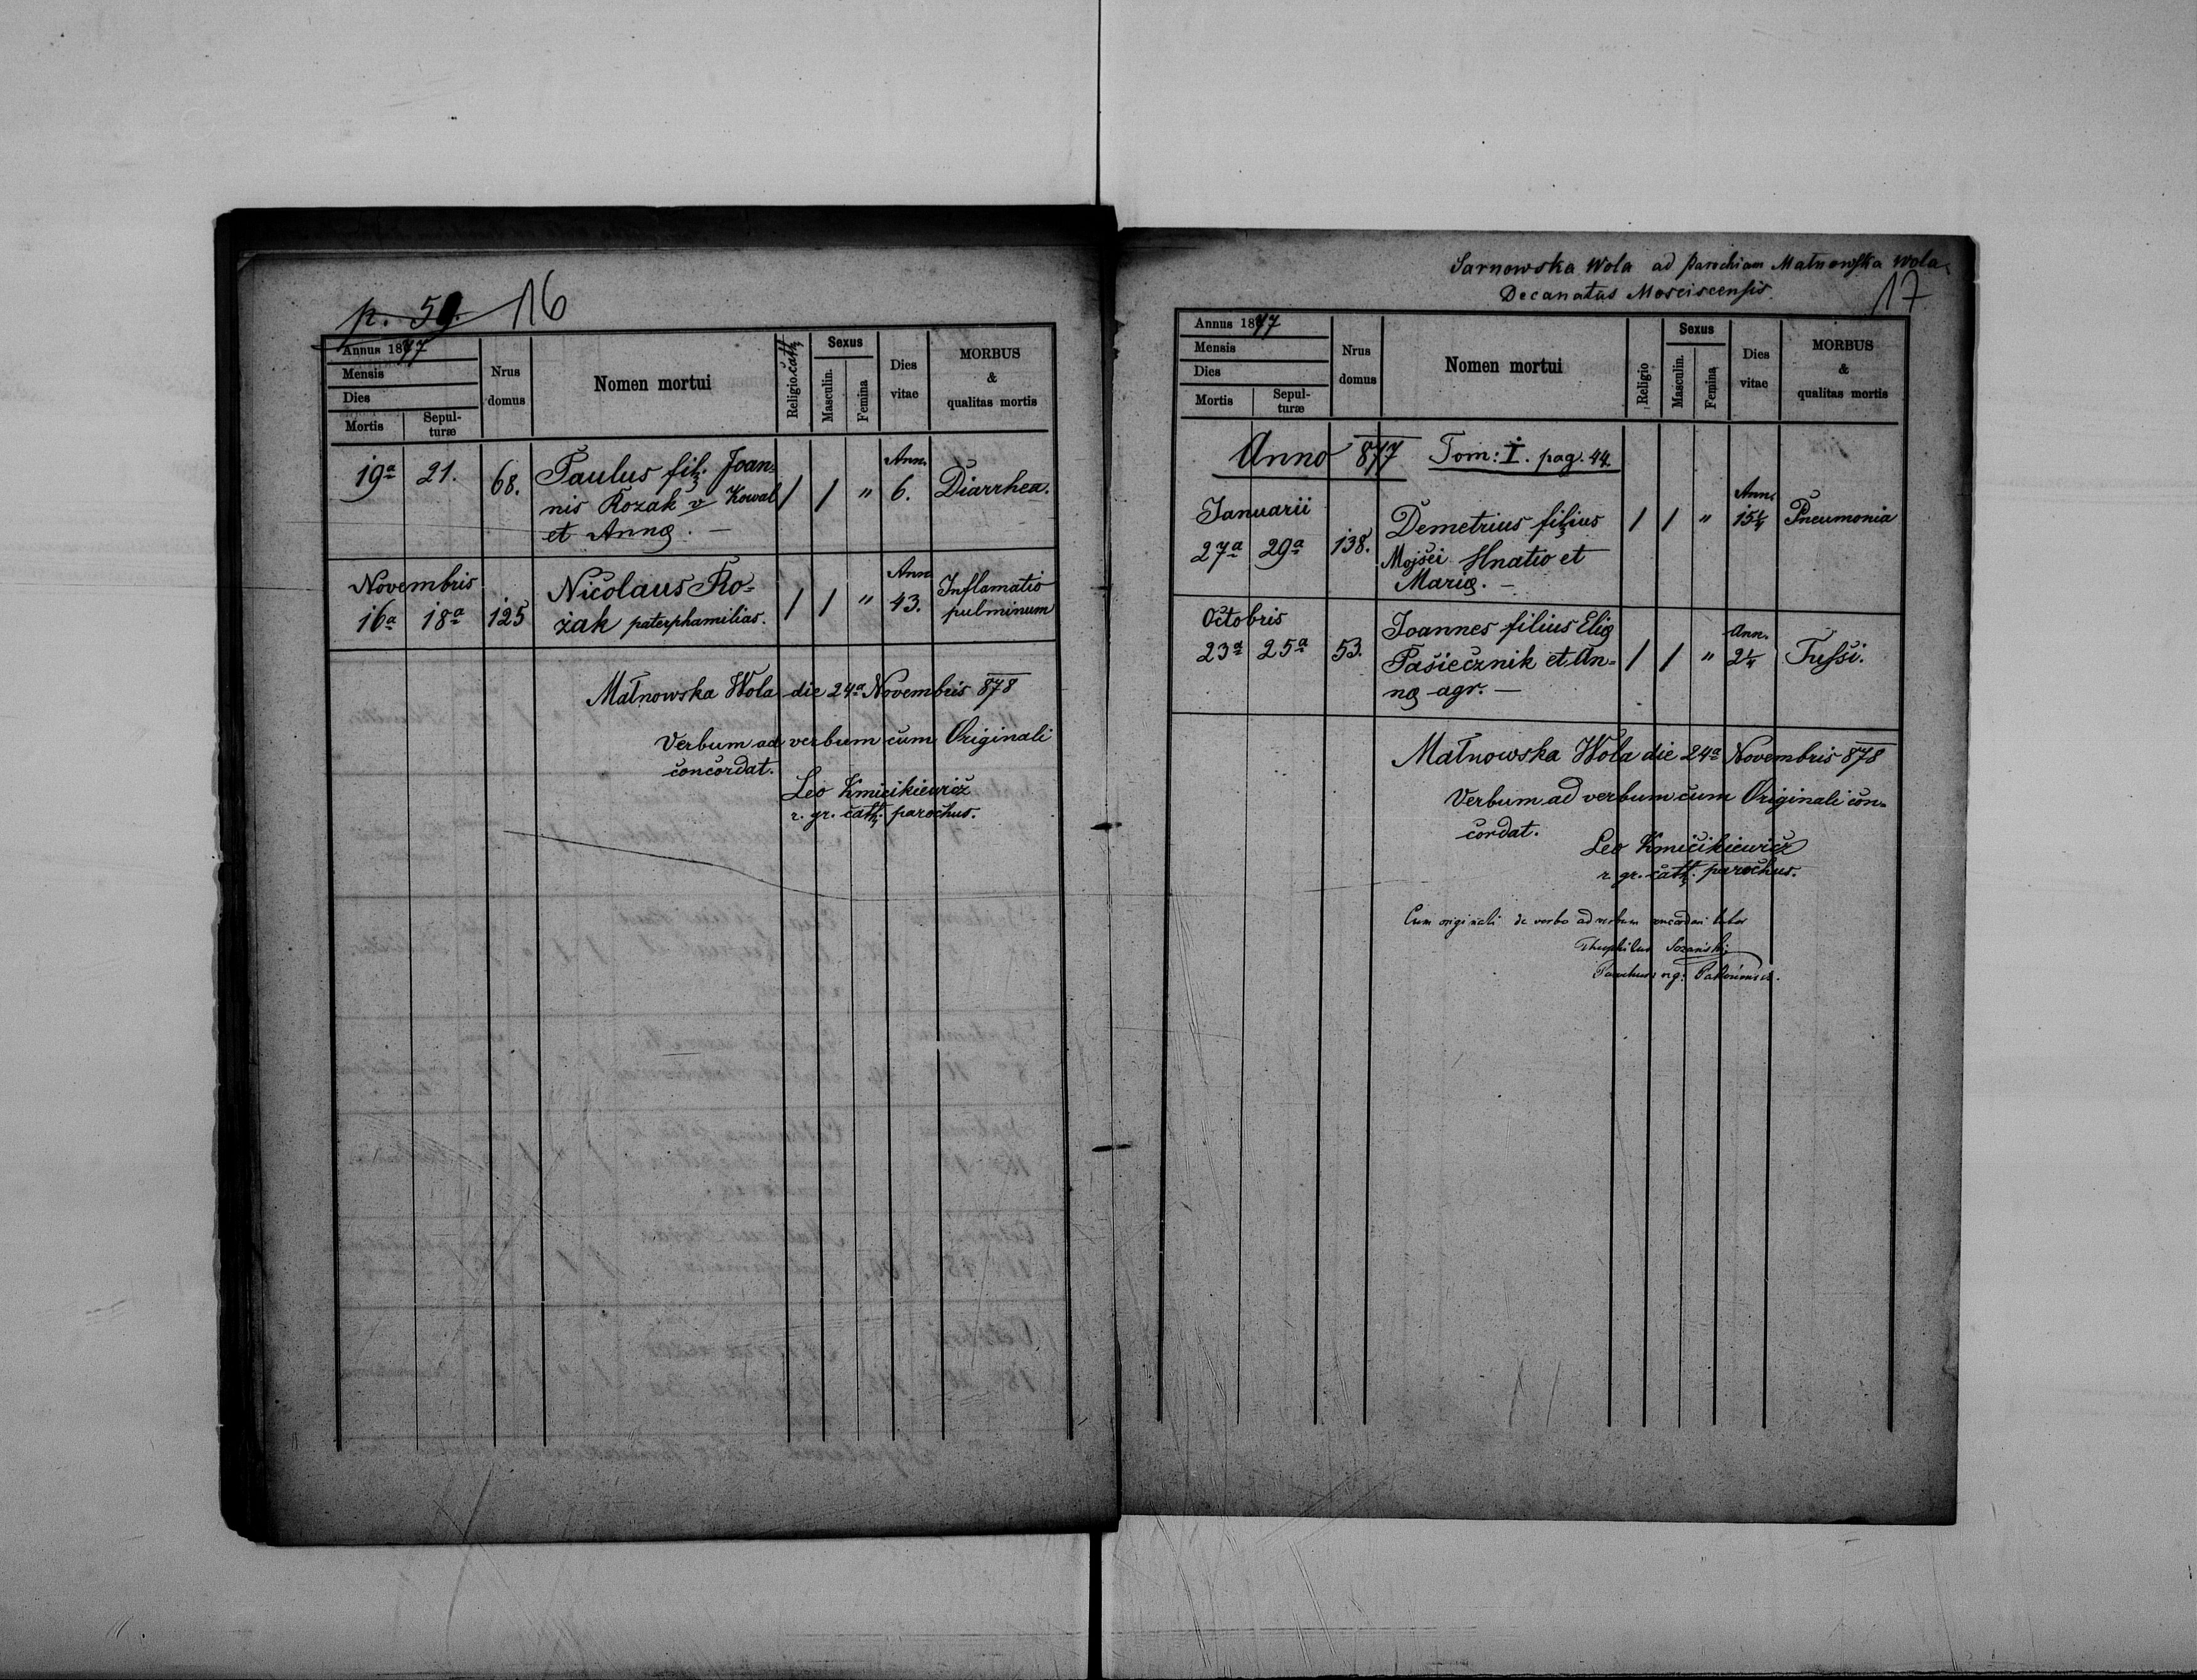 p. 59. 16
Annus 1877
Mensis
Dies
Mortis
Sepul-
turæ
Nrus
domus
Nomen mortui
Religio cath.
Sexus
Masculin.
Femina
Dies
vitae
MORBUS
&
qualitas mortis
19a 21. 68. Paulus fil. Joan= / / " Ann. 6. Diarrhea.
nis Rozak v Kowal
et Annæ. —
Novembris
16a 18a 125 Nicolaus Ro= / / " Ann. 43. Inflamatio
żak paterphamilias. pulminum
Małnowska Wola die 24a Novembris 878
Verbum ad verbum cum Originali
concordat.
Leo Kmicikiewicz
r. gr. cath. parochus.
Sarnowska Wola ad parochiam Małnowska Wola
Decanatus Mosciscensis.
17
Annus 1877
Mensis
Dies
Mortis
Sepul-
turæ
Nrus
domus
Nomen mortui
Religio
Sexus
Masculin.
Femina
Dies
vitae
MORBUS
&
qualitas mortis
Anno 877 Tom: I. pag. 44.
Januarii
27a 29a 138. Demetrius filius / / " Ann. Pneumonia
Mojsei Hnatio et
Mariæ. —
Octobris
23a 25a 53. Joannes filius Eliæ / / " Ann. Tussi.
Pasiecznik et An=
næ agr. —
Małnowska Wola die 24a Novembris 878
Verbum ad verbum cum Originali con=
cordat.
Leo Kmicikiewicz
r. gr. cath. parochus.
Cum originali de verbo ad verbum
Theophilus Sozański
Parochus